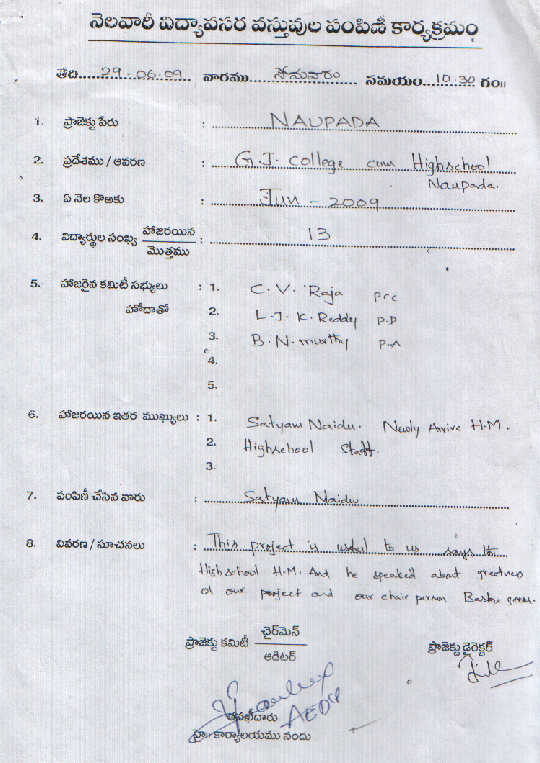 నెలవారీ విద్యావసర వస్తువుల పంపిణీ కార్యక్రమం
తేది. 29-06-09 వారము సోమవారం సమయం 10.30 గం॥
1. ప్రాజెక్టు పేరు : NAUPADA
2. ప్రదేశము / ఆవరణ : G.J. College cum Highschool
Naupada.
3. ఏ నెల కొఱకు : Jun - 2009
4. విద్యార్థుల సంఖ్య హాజరయిన : 13
మొత్తము
5. హాజరైన కమిటీ సభ్యులు : 1. C. V. Raja prc
హోదాతో 2. L.J. K. Reddy P.D
3. B. N. murthy P.A
4.
5.
6. హాజరయిన ఇతర ముఖ్యులు : 1. Satyam Naidu. Newly Arrive H.M.
2. Highschool Staff.
3.
7. పంపిణీ చేసిన వారు : Satyam Naidu
8. వివరణ / సూచనలు : This project is useful to us says the
Highschool H.M. And he speaked about greatness
of our project and our chair person
ప్రాజెక్టు కమిటీ చైర్‌మెన్ ప్రాజెక్టు డైరెక్టర్
ఆడిటర్
AEDP
తనిఖీదారు
ప్ర. కార్యాలయము నందు